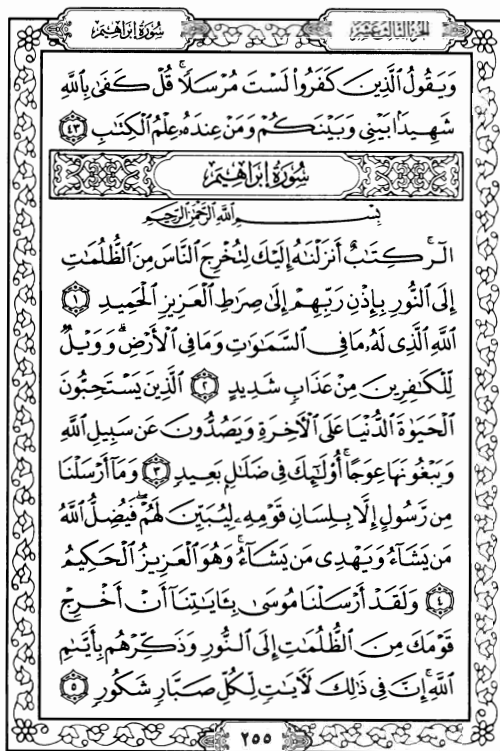 سُورَةُ إِبْرَاهِيمَ
الجزء الثالث عشر
وَيَقُولُ ٱلَّذِينَ كَفَرُوا۟ لَسْتَ مُرْسَلًا ۚ قُلْ كَفَىٰ بِٱللَّهِ
شَهِيدًۢا بَيْنِى وَبَيْنَكُمْ وَمَنْ عِندَهُۥ عِلْمُ ٱلْكِتَٰبِ ٤٣
سُورَةُ إِبْرَاهِيمَ
بِسْمِ ٱللَّهِ ٱلرَّحْمَٰنِ ٱلرَّحِيمِ
الٓر ۚ كِتَٰبٌ أَنزَلْنَٰهُ إِلَيْكَ لِتُخْرِجَ ٱلنَّاسَ مِنَ ٱلظُّلُمَٰتِ
إِلَى ٱلنُّورِ بِإِذْنِ رَبِّهِمْ إِلَىٰ صِرَٰطِ ٱلْعَزِيزِ ٱلْحَمِيدِ ١
ٱللَّهِ ٱلَّذِى لَهُۥ مَا فِى ٱلسَّمَٰوَٰتِ وَمَا فِى ٱلْأَرْضِ ۗ وَوَيْلٌ
لِّلْكَٰفِرِينَ مِنْ عَذَابٍ شَدِيدٍ ٢ ٱلَّذِينَ يَسْتَحِبُّونَ
ٱلْحَيَوٰةَ ٱلدُّنْيَا عَلَى ٱلْءَاخِرَةِ وَيَصُدُّونَ عَن سَبِيلِ ٱللَّهِ
وَيَبْغُونَهَا عِوَجًا ۚ أُو۟لَٰٓئِكَ فِى ضَلَٰلٍۭ بَعِيدٍ ٣ وَمَآ أَرْسَلْنَا
مِن رَّسُولٍ إِلَّا بِلِسَانِ قَوْمِهِۦ لِيُبَيِّنَ لَهُمْ ۖ فَيُضِلُّ ٱللَّهُ
مَن يَشَآءُ وَيَهْدِى مَن يَشَآءُ ۚ وَهُوَ ٱلْعَزِيزُ ٱلْحَكِيمُ
٤ وَلَقَدْ أَرْسَلْنَا مُوسَىٰ بِـَٔايَٰتِنَآ أَنْ أَخْرِجْ
قَوْمَكَ مِنَ ٱلظُّلُمَٰتِ إِلَى ٱلنُّورِ وَذَكِّرْهُم بِأَيَّىٰمِ
ٱللَّهِ ۚ إِنَّ فِى ذَٰلِكَ لَءَايَٰتٍ لِّكُلِّ صَبَّارٍ شَكُورٍ ٥
٢٥٥